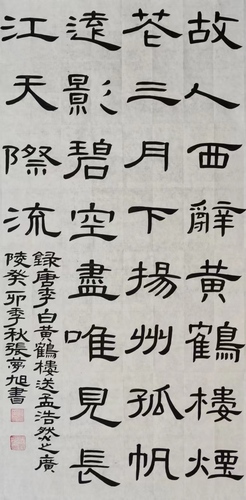 故人西辭黃鶴樓煙
花三月下揚州孤帆
遠影碧空盡唯見長
江天際流
錄唐李白黃鶴樓送孟浩然之廣
陵癸卯季秋張夢旭書